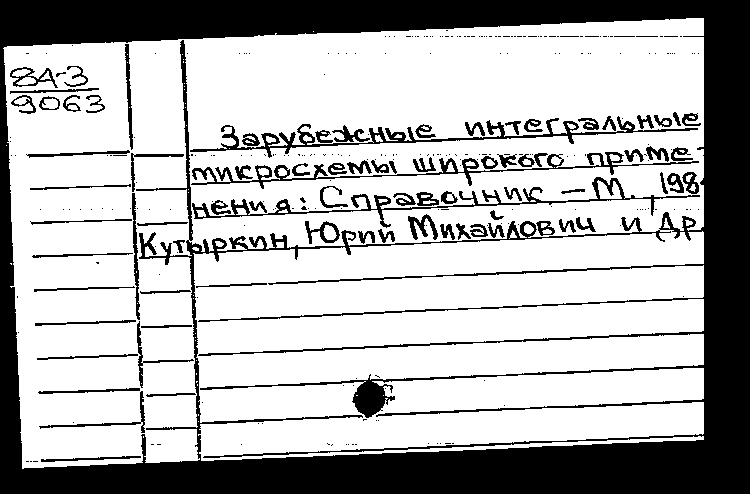 84-3
9063
Зарубежные интегральные
микросхемы широкого приме-
нения: Справочник. – М., 198
Кутыркин, Юрий Михайлович и др.